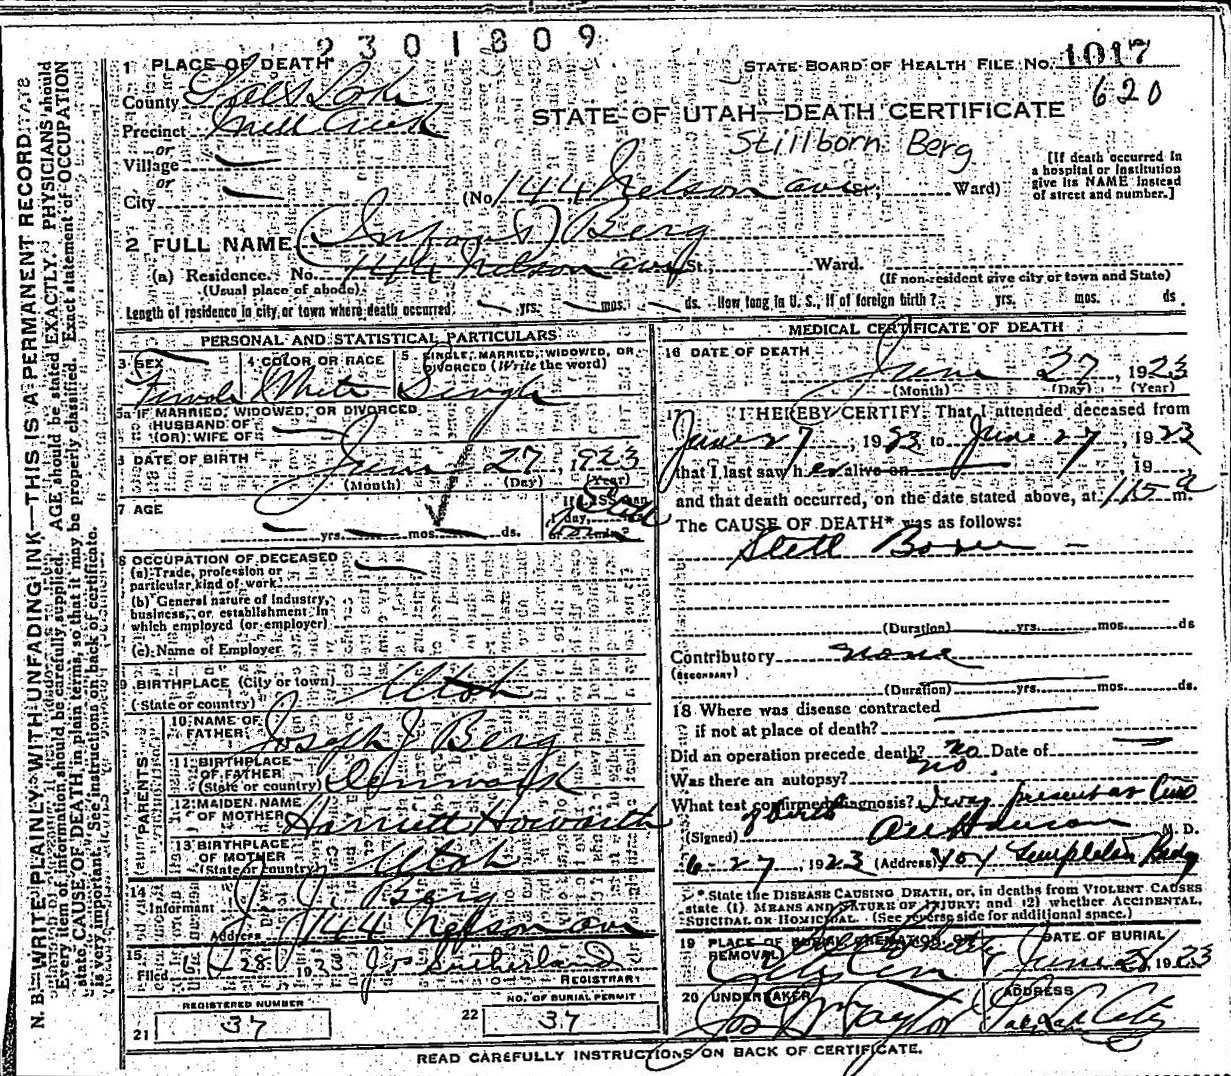 2301809
1 PLACE OF DEATH
STATE BOARD OF HEALTH FILE No. 1017
620
County Salt Lake
STATE OF UTAH—DEATH CERTIFICATE
Precinct Mill Creek
Stillborn Berg
or
Village
or
City (No. 144 Nelson ave St., Ward)
[If death occurred in a hospital or institution give its NAME instead of street and number.]
2 FULL NAME Infant Berg
(a) Residence. No. 144 Nelson ave St. Ward.
(Usual place of abode) (If non-resident give city or town and State)
Length of residence in city or town where death occurred yrs. mos. ds. How long in U. S., if of foreign birth? yrs. mos. ds.
PERSONAL AND STATISTICAL PARTICULARS
3 SEX Female
4 COLOR OR RACE White
5 SINGLE, MARRIED, WIDOWED, OR DIVORCED (Write the word) Single
5a IF MARRIED, WIDOWED, OR DIVORCED
HUSBAND OF
(OR) WIFE OF
DATE OF BIRTH June 27, 1923
(Month) (Day) (Year)
7 AGE yrs. mos. ds. If LESS than 1 day,
8 OCCUPATION OF DECEASED
(a) Trade, profession or particular kind of work
(b) General nature of Industry, business, or establishment in which employed (or employer)
(c) Name of Employer
9 BIRTHPLACE (City or town) Utah
(State or country)
PARENTS
10 NAME OF FATHER Joseph J Berg
11 BIRTHPLACE OF FATHER Denmark
(State or country)
12 MAIDEN NAME OF MOTHER Harriett Howarth
13 BIRTHPLACE OF MOTHER Utah
(State or country)
14 Informant J. J. Berg
Address 144 Nelson ave
15 Filed 6 28 1923 Jos Sutherland
REGISTRAR
REGISTERED NUMBER
21 37
NO. OF BURIAL PERMIT
22 37
MEDICAL CERTIFICATE OF DEATH
16 DATE OF DEATH June 27, 1923
(Month) (Day) (Year)
17 I HEREBY CERTIFY, That I attended deceased from
June 27, 1923 to June 27, 1923
that I last saw her alive on , 19
and that death occurred, on the date stated above, at 1.15 a m.
The CAUSE OF DEATH* was as follows:
Still Born
(Duration) yrs. mos. ds
Contributory none
(SECONDARY)
(Duration) yrs. mos. ds.
18 Where was disease contracted
if not at place of death?
Did an operation precede death? no Date of
Was there an autopsy? no
What test confirmed diagnosis? I was present at time
of birth
(Signed) M. D.
6-27, 1923 (Address) 404 Templeton Bldg
* State the DISEASE CAUSING DEATH, or, in deaths from VIOLENT CAUSES
state (1) MEANS AND NATURE OF INJURY; and (2) whether ACCIDENTAL,
SUICIDAL OR HOMICIDAL. (See reverse side for additional space.)
19 PLACE OF BURIAL, CREMATION, OR REMOVAL
DATE OF BURIAL
June 28 1923
20 UNDERTAKER
ADDRESS
Jos Wm Taylor Salt Lake City
READ CAREFULLY INSTRUCTIONS ON BACK OF CERTIFICATE.
N. B.—WRITE PLAINLY WITH UNFADING INK—THIS IS A PERMANENT RECORD
Every item of information should be carefully supplied. AGE should be stated EXACTLY. PHYSICIANS should
state CAUSE OF DEATH in plain terms, so that it may be properly classified. Exact statement of OCCUPATION
is very important. See instructions on back of certificate.